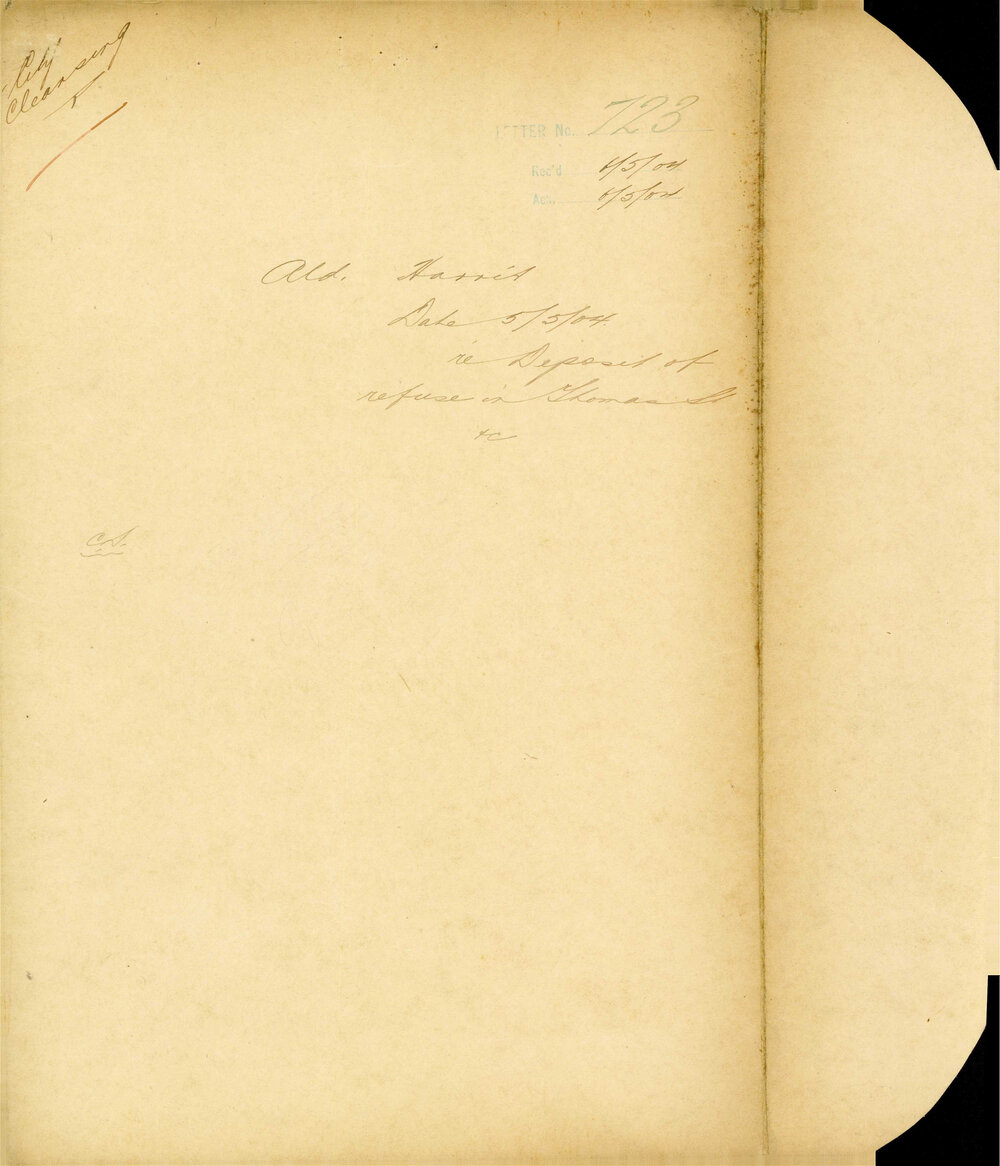 City
Cleansing
LETTER No. 723
Rec'd 6/5/04
Ack. 6/5/04
Ald. Harris
Date 5/5/04
re Deposit of
refuse in Thomas St
&c
C.S.